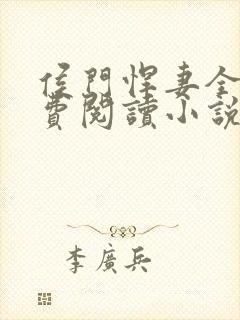 侯門悍妻全
費閱讀小說
李廣兵